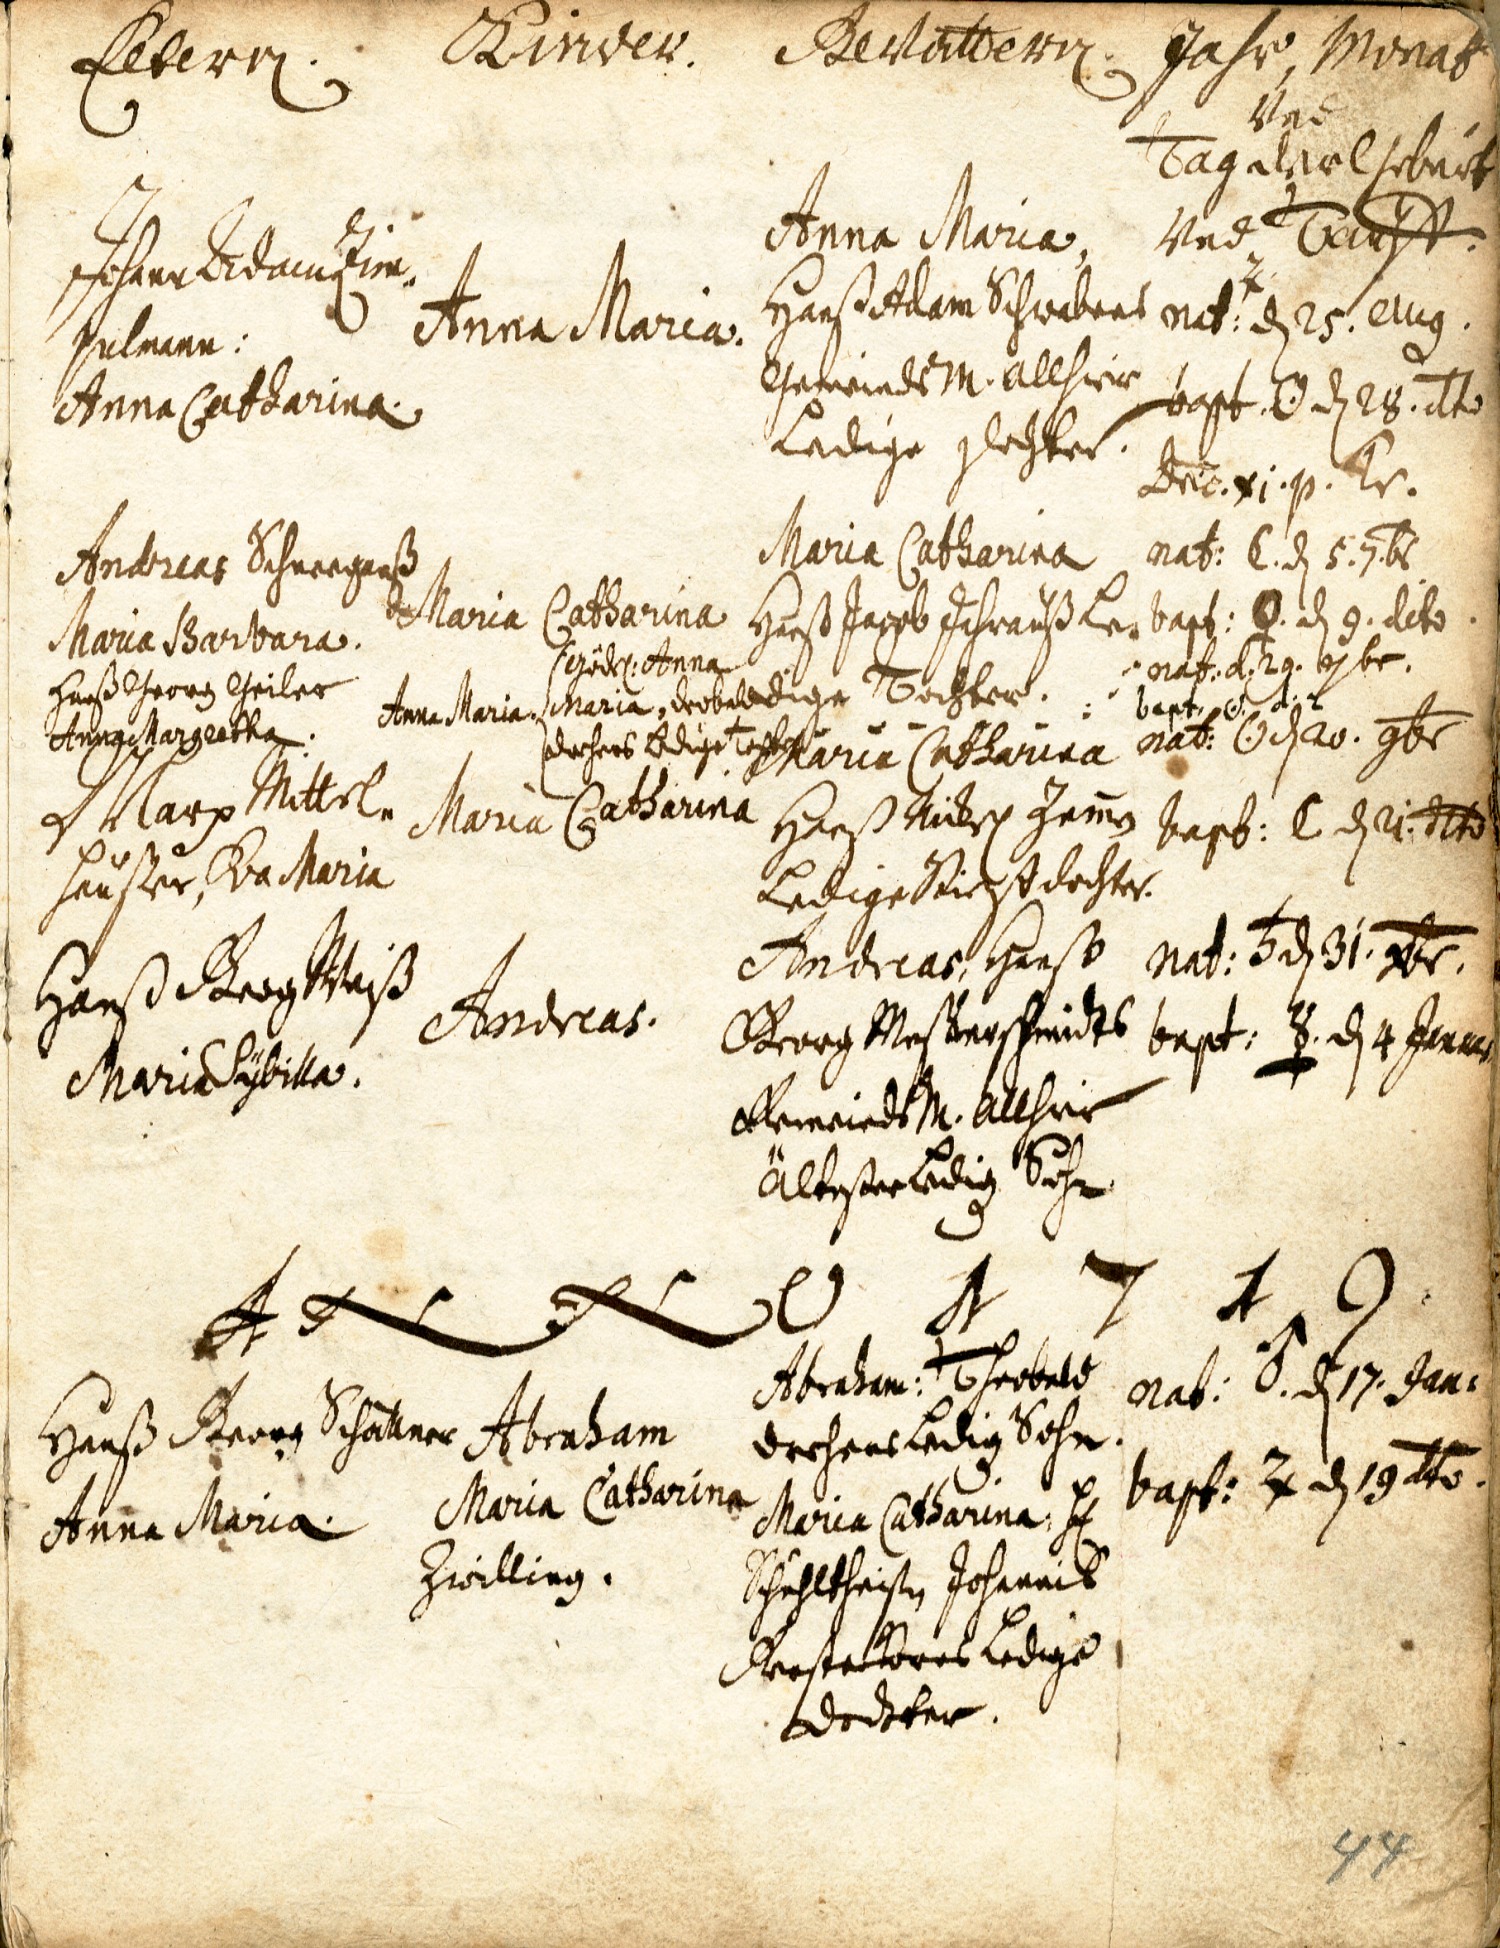 Eltern. Kinder. Gevattern. Jahr, Monat
Vnd
Tag der Geburt
Vnd Tauff.
Johann Adam Zim-
melmann:
Anna Catharina.
Anna Maria.
Anna Maria,
Hanß Adam Schwabens
Gemeinds M. allhier
Ledige dochter.
nat: d 25. Aug.
bapt. ☉ d 28. dto
Dnc. xi. p. Tr.
Andreas Schneeganß
Maria Barbara.
Maria Catharina
Maria Catharina
Hanß Jacob Schrauß Le-
dige Tochter.
nat: ☾. d 5. 7br
bapt: ♀. d 9. dito
Hanß Georg Geiler
Anna Margretha.
Anna Maria.
Gödel: Anna
Maria, Deobald
drehers Ledige Tochter
nat: d. 29. 7br.
bapt. ☉. d. 2
Marx Mittel-
häußer, Eva Maria
Maria Catharina
Maria Catharina
Hanß Nickel
Ledige dochter.
nat: ☉ d 20. 9br
bapt: ☾ d 21. dto
Hanß Georg Weiß
Maria Sybilla.
Andreas.
Andreas, Hanß
Georg Messerschmidts
Gemeinds M. allhier
ältester Ledig Sohn
nat: ♄ d 31. xbr.
bapt: ☿. d 4 Januar
ANNO 1719.
Hanß Georg Schattner
Anna Maria.
Abraham
Maria Catharina
Zwilling.
Abraham: Theobald
drehers Ledig Sohn.
Maria Catharina. H
Schultheisen Johannis
Ledige
dochter.
nat: ♂. d 17. Jan:
bapt: ♃ d 19 dto.
44